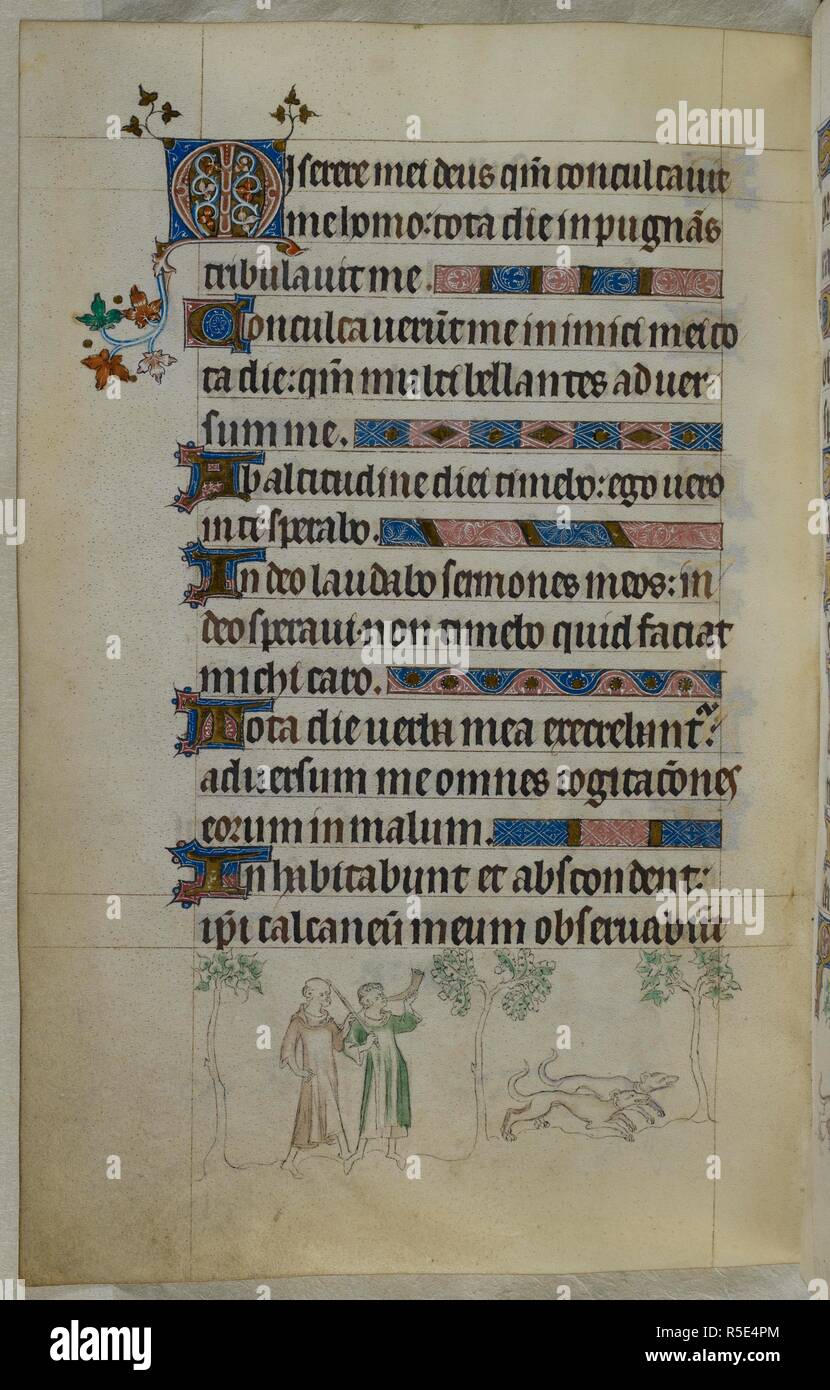 Miserere mei deus qm̄ conculcauit
me homo: tota die inpugnās
tribulauit me.
Conculcauerūt me inimici mei to
ta die: qm̄ multi bellantes aduer-
sum me.
Ab altitudine diei timebo: ego uero
in te sperabo.
In deo laudabo sermones meos: in
deo speraui non timebo quid faciat
michi caro.
Tota die uerba mea execrebant̃:
aduersum me omnes cogitac̄ones
eorum in malum.
Inhabitabunt et abscondent:
ip̄i calcaneū meum obseruabūt
alamy
Image ID: R5E4PM
www.alamy.com